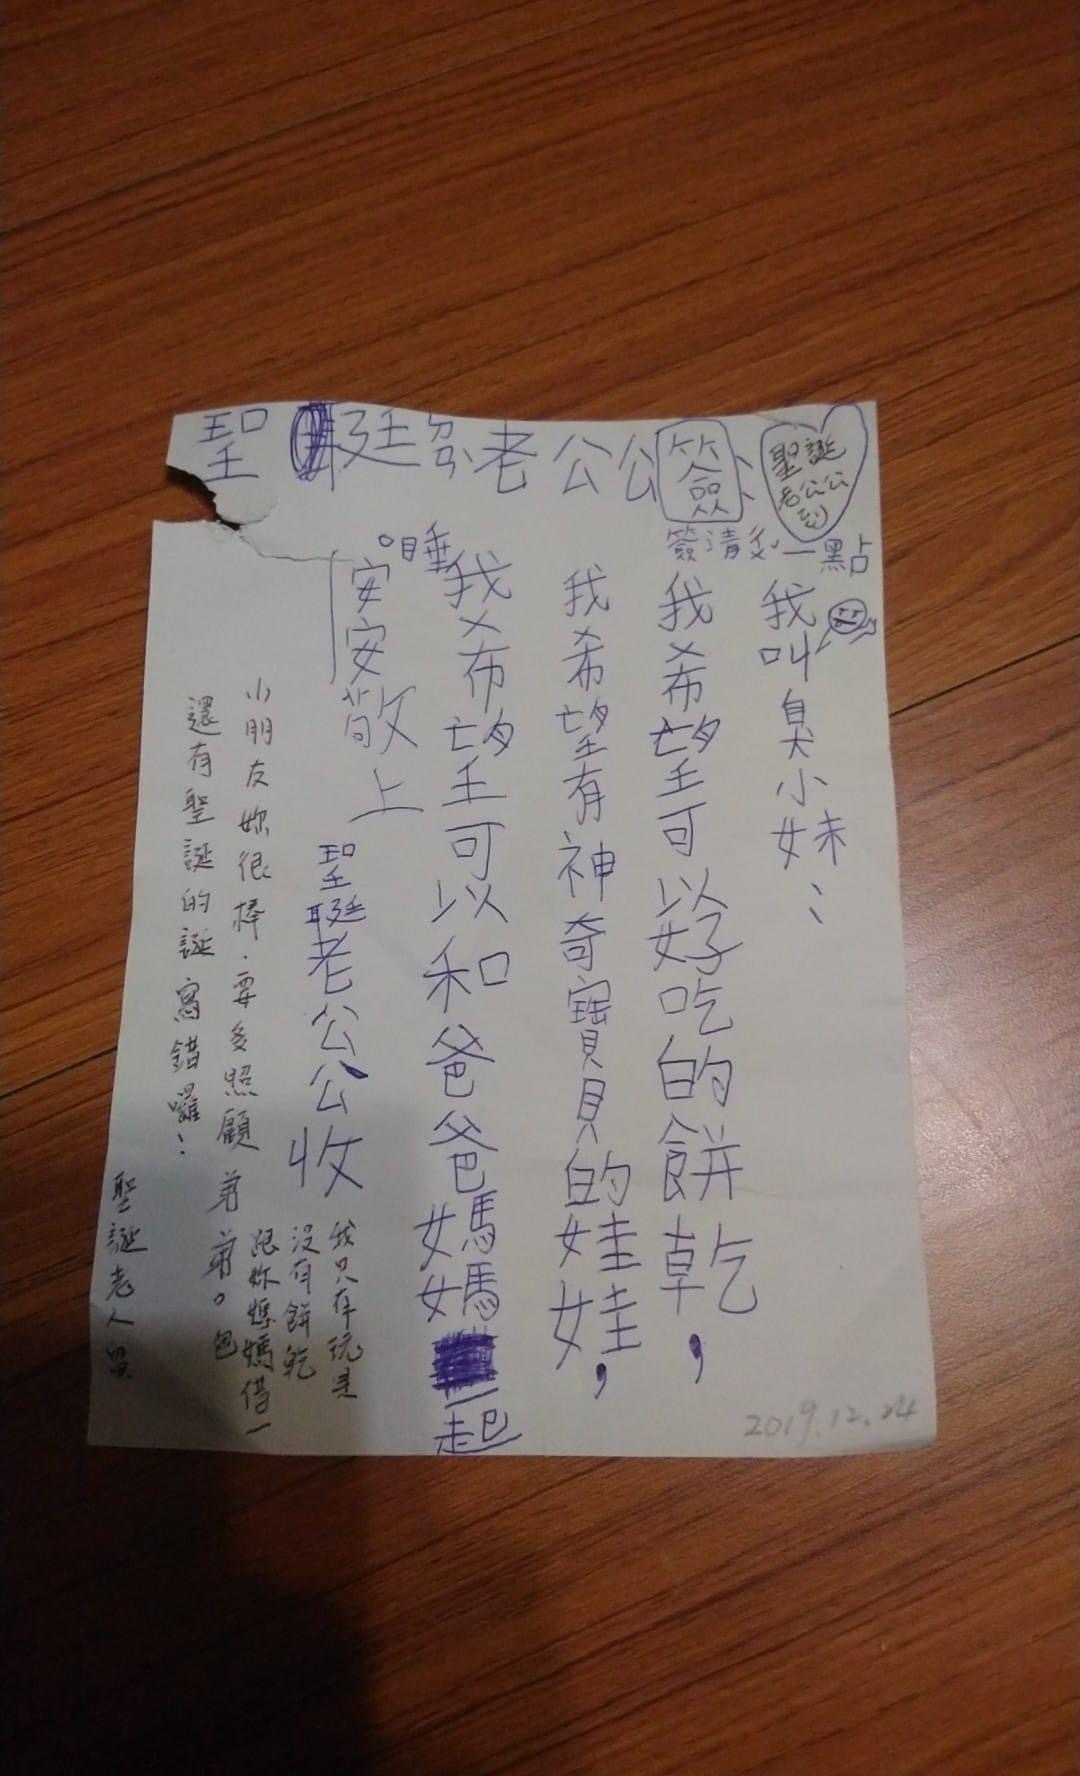 聖 老公公簽
聖誕
老公公
到
簽清 一點
我叫臭小妹：
我希望可以好吃的餅乾，
我希望有神奇寶貝的娃娃，
我希望可以和爸爸媽媽一起
睡。
安安敬上
聖老公公收
小朋友妳很棒．要多照顧弟弟。
還有聖誕的誕寫錯囉！
聖誕老人 留
我只有玩具
沒有餅乾
跟妳媽媽借一
包
2019.12.24